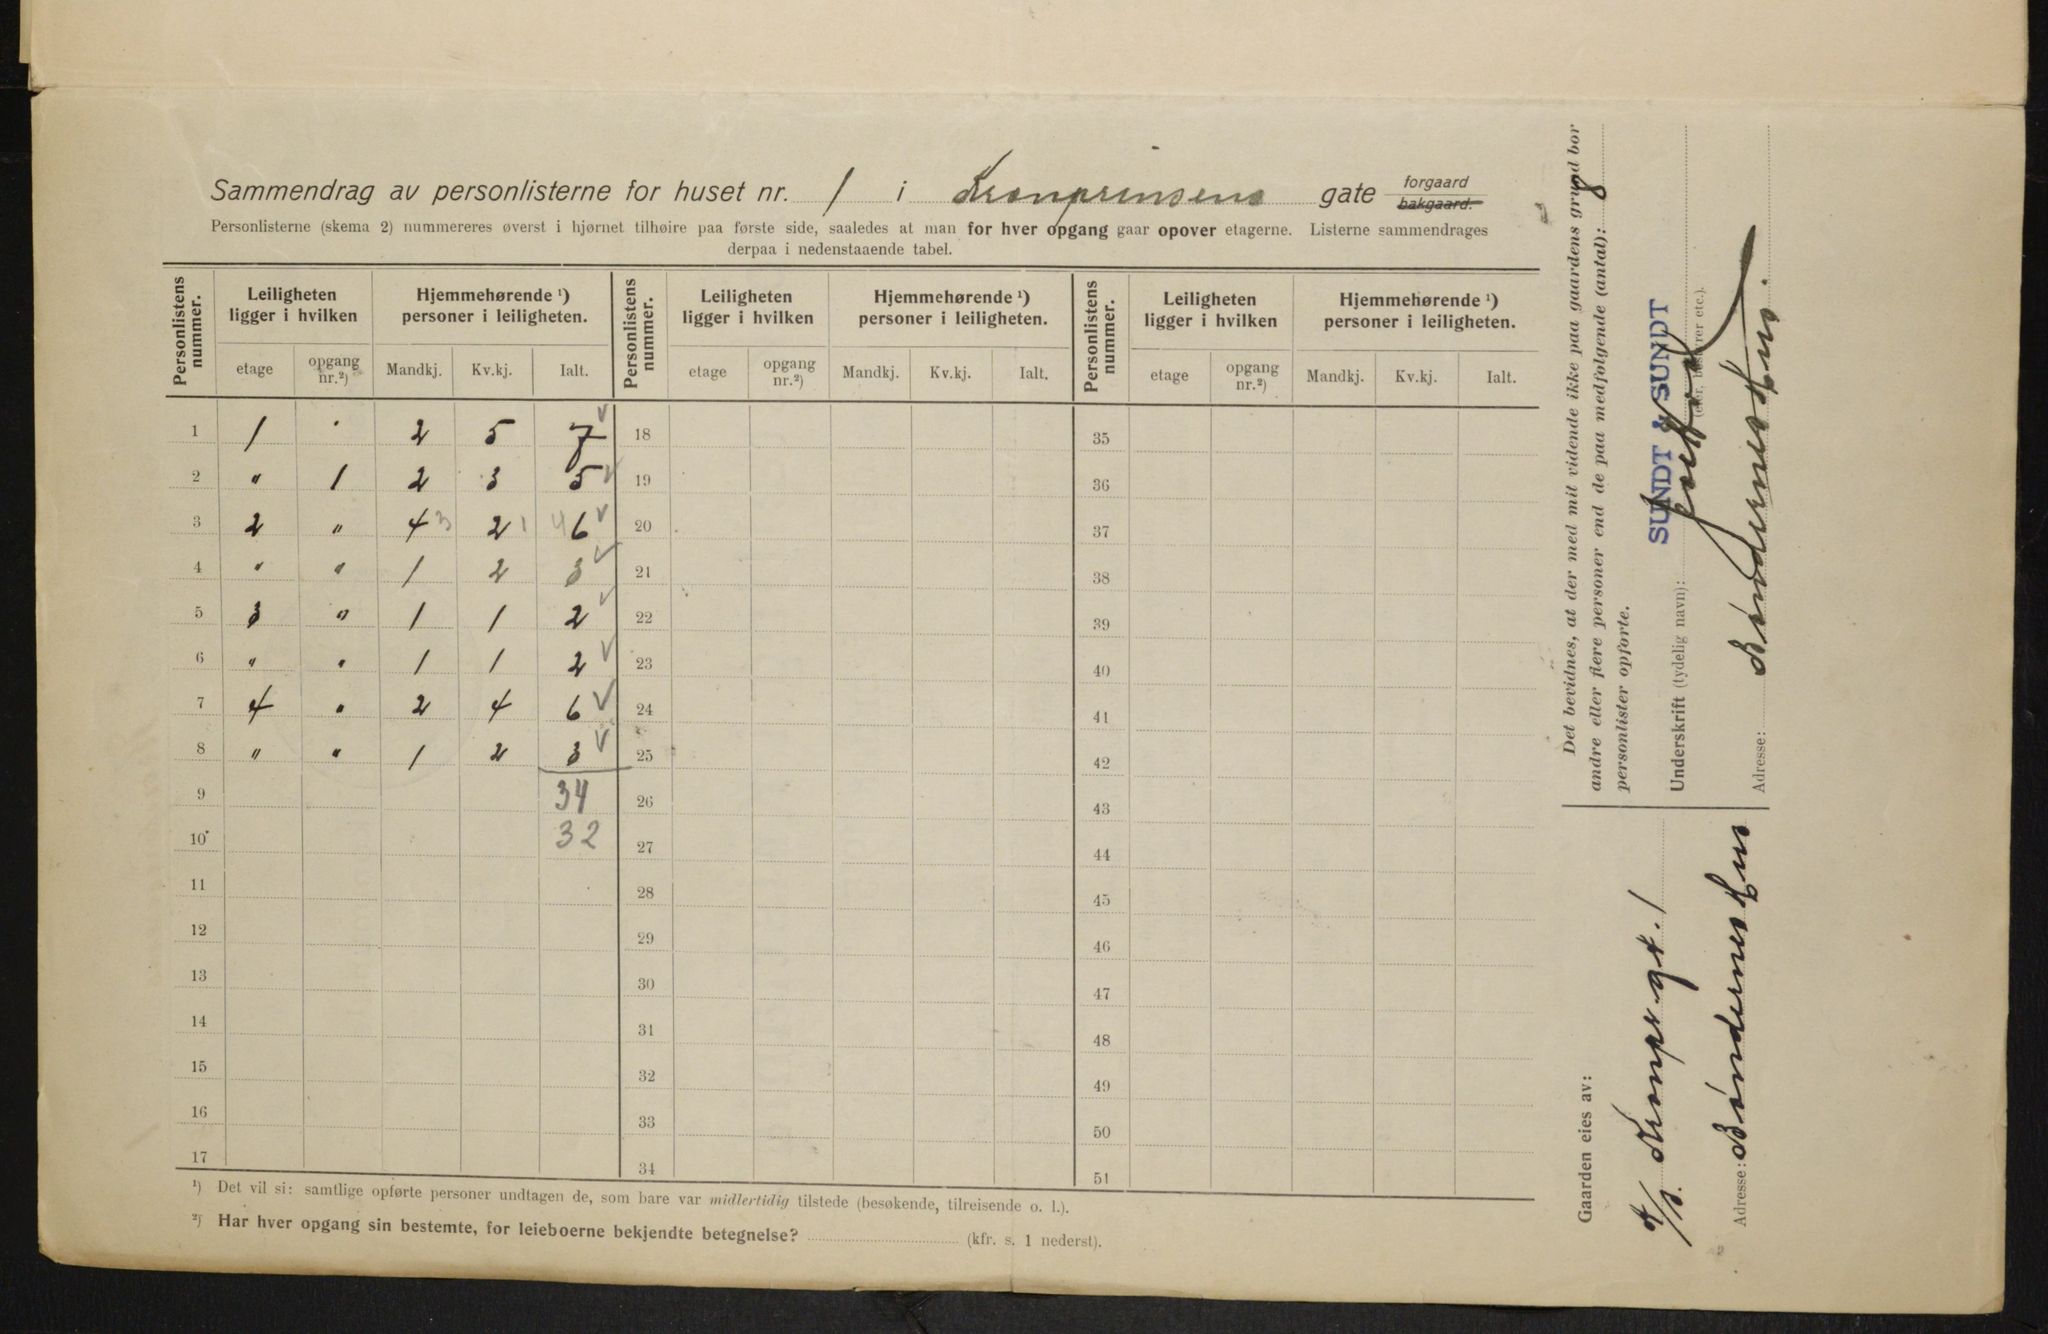 Sammendrag av personlisterne for huset nr. 1 i Kronprinsens gate forgaard bakgaard.
Personlisterne (skema 2) nummereres øverst i hjørnet tilhøire paa første side, saaledes at man for hver opgang gaar opover etagerne. Listerne sammendrages
derpaa i nedenstaaende tabel.
Personlistens nummer. Leiligheten ligger i hvilken Hjemmehørende ¹) personer i leiligheten. Personlistens nummer. Leiligheten ligger i hvilken Hjemmehørende ¹) personer i leiligheten. Personlistens nummer. Leiligheten ligger i hvilken Hjemmehørende ¹) personer i leiligheten.
etage opgang nr.²) Mandkj. Kv.kj. Ialt. etage opgang nr.²) Mandkj. Kv.kj. Ialt. etage opgang nr.²) Mandkj. Kv.kj. Ialt.
1 1 " 2 5 7 ✓ 18 35
2 " 1 2 3 5 ✓ 19 36
3 2 " 4 3 2 1 4 6 ✓ 20 37
4 " " 1 2 3 ✓ 21 38
5 3 " 1 1 2 ✓ 22 39
6 " " 1 1 2 ✓ 23 40
7 4 " 2 4 6 ✓ 24 41
8 " " 1 2 3 ✓ 25 42
9 34 26 43
10 32 27 44
11 28 45
12 29 46
13 30 47
14 31 48
15 32 49
16 33 50
17 34 51
¹) Det vil si: samtlige opførte personer undtagen de, som bare var midlertidig tilstede (besøkende, tilreisende o. l.).
²) Har hver opgang sin bestemte, for leieboerne bekjendte betegnelse? (kfr. s. 1 nederst).
Det bevidnes, at der med mit vidende ikke paa gaardens grund bor
andre eller flere personer end de paa medfølgende (antal): 8
personlister opførte.
SUNDT & SUNDT
Underskrift (tydelig navn):
(eier, bestyrer etc.).
Adresse: Bøndernes Hus.
Gaarden eies av:
A/S. Kronpr. gt. 1
Adresse: Bøndernes Hus